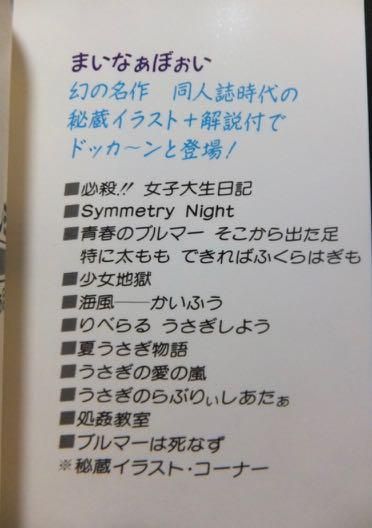 まいなぁぼぉい
幻の名作 同人誌時代の
秘蔵イラスト+解説付で
ドッカ〜ンと登場!
■必殺!! 女子大生日記
■Symmetry Night
■青春のブルマー そこから出た足
特に太もも できればふくらはぎも
■少女地獄
■海風──かいふう
■りべらる うさぎしよう
■夏うさぎ物語
■うさぎの愛の嵐
■うさぎのらぶりぃしあたぁ
■処姦教室
■ブルマーは死なず
※秘蔵イラスト・コーナー